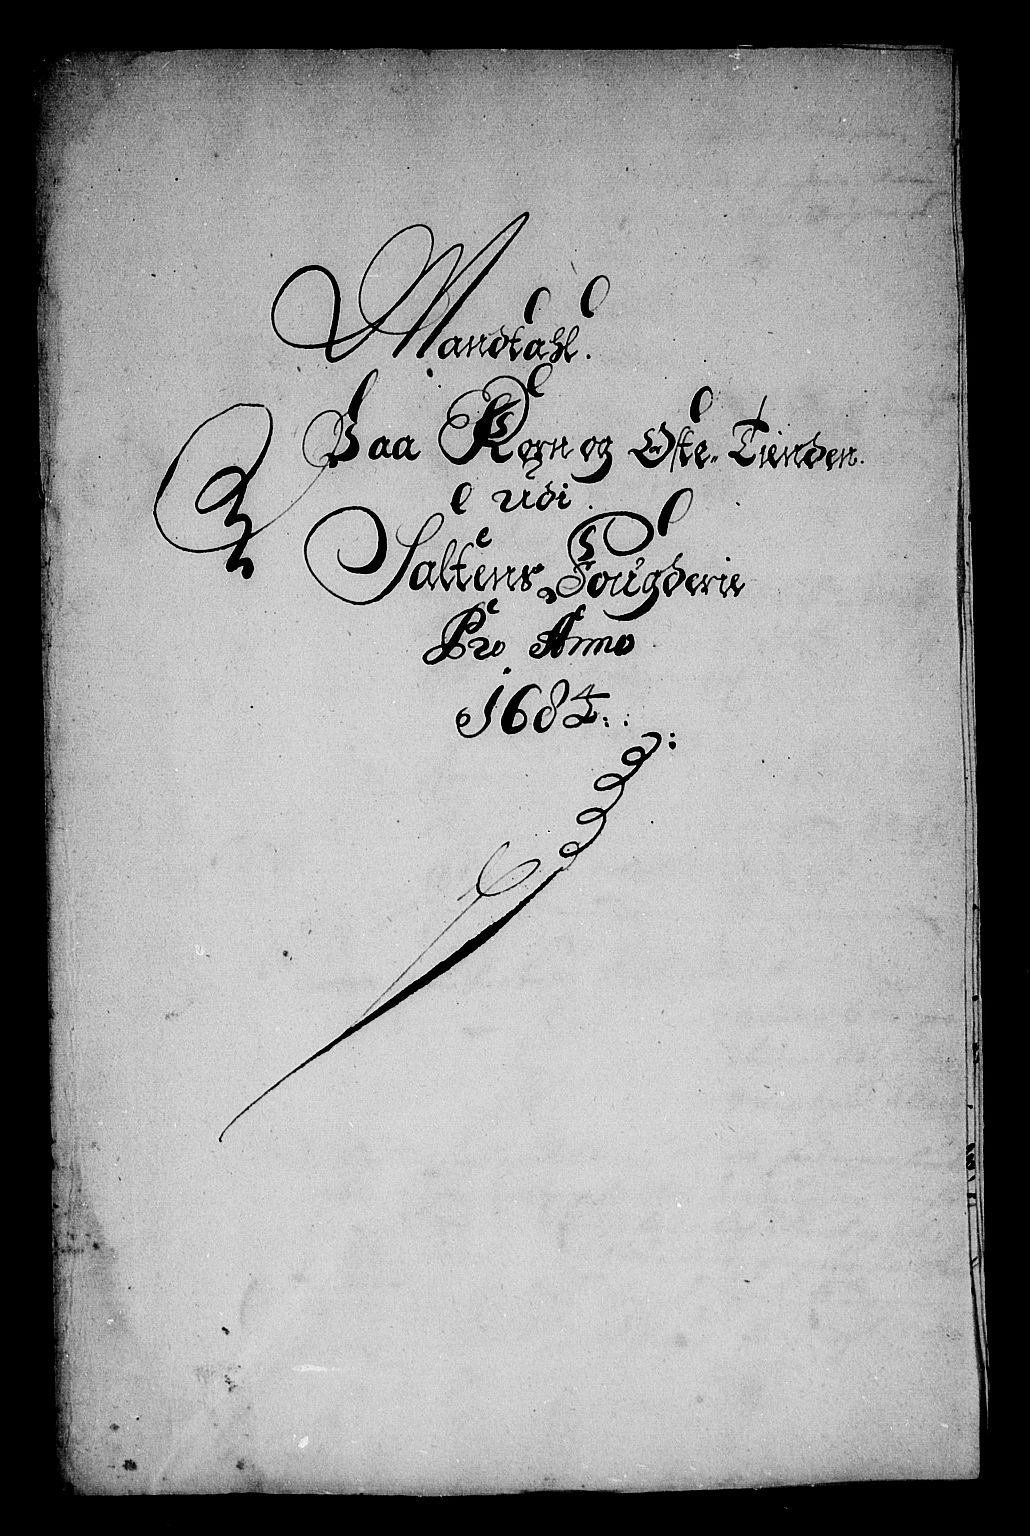 Mandtahl.
Paa Korn og Oste-Tienden
udi
Saltens Fougderie
Pro Anno
1684: